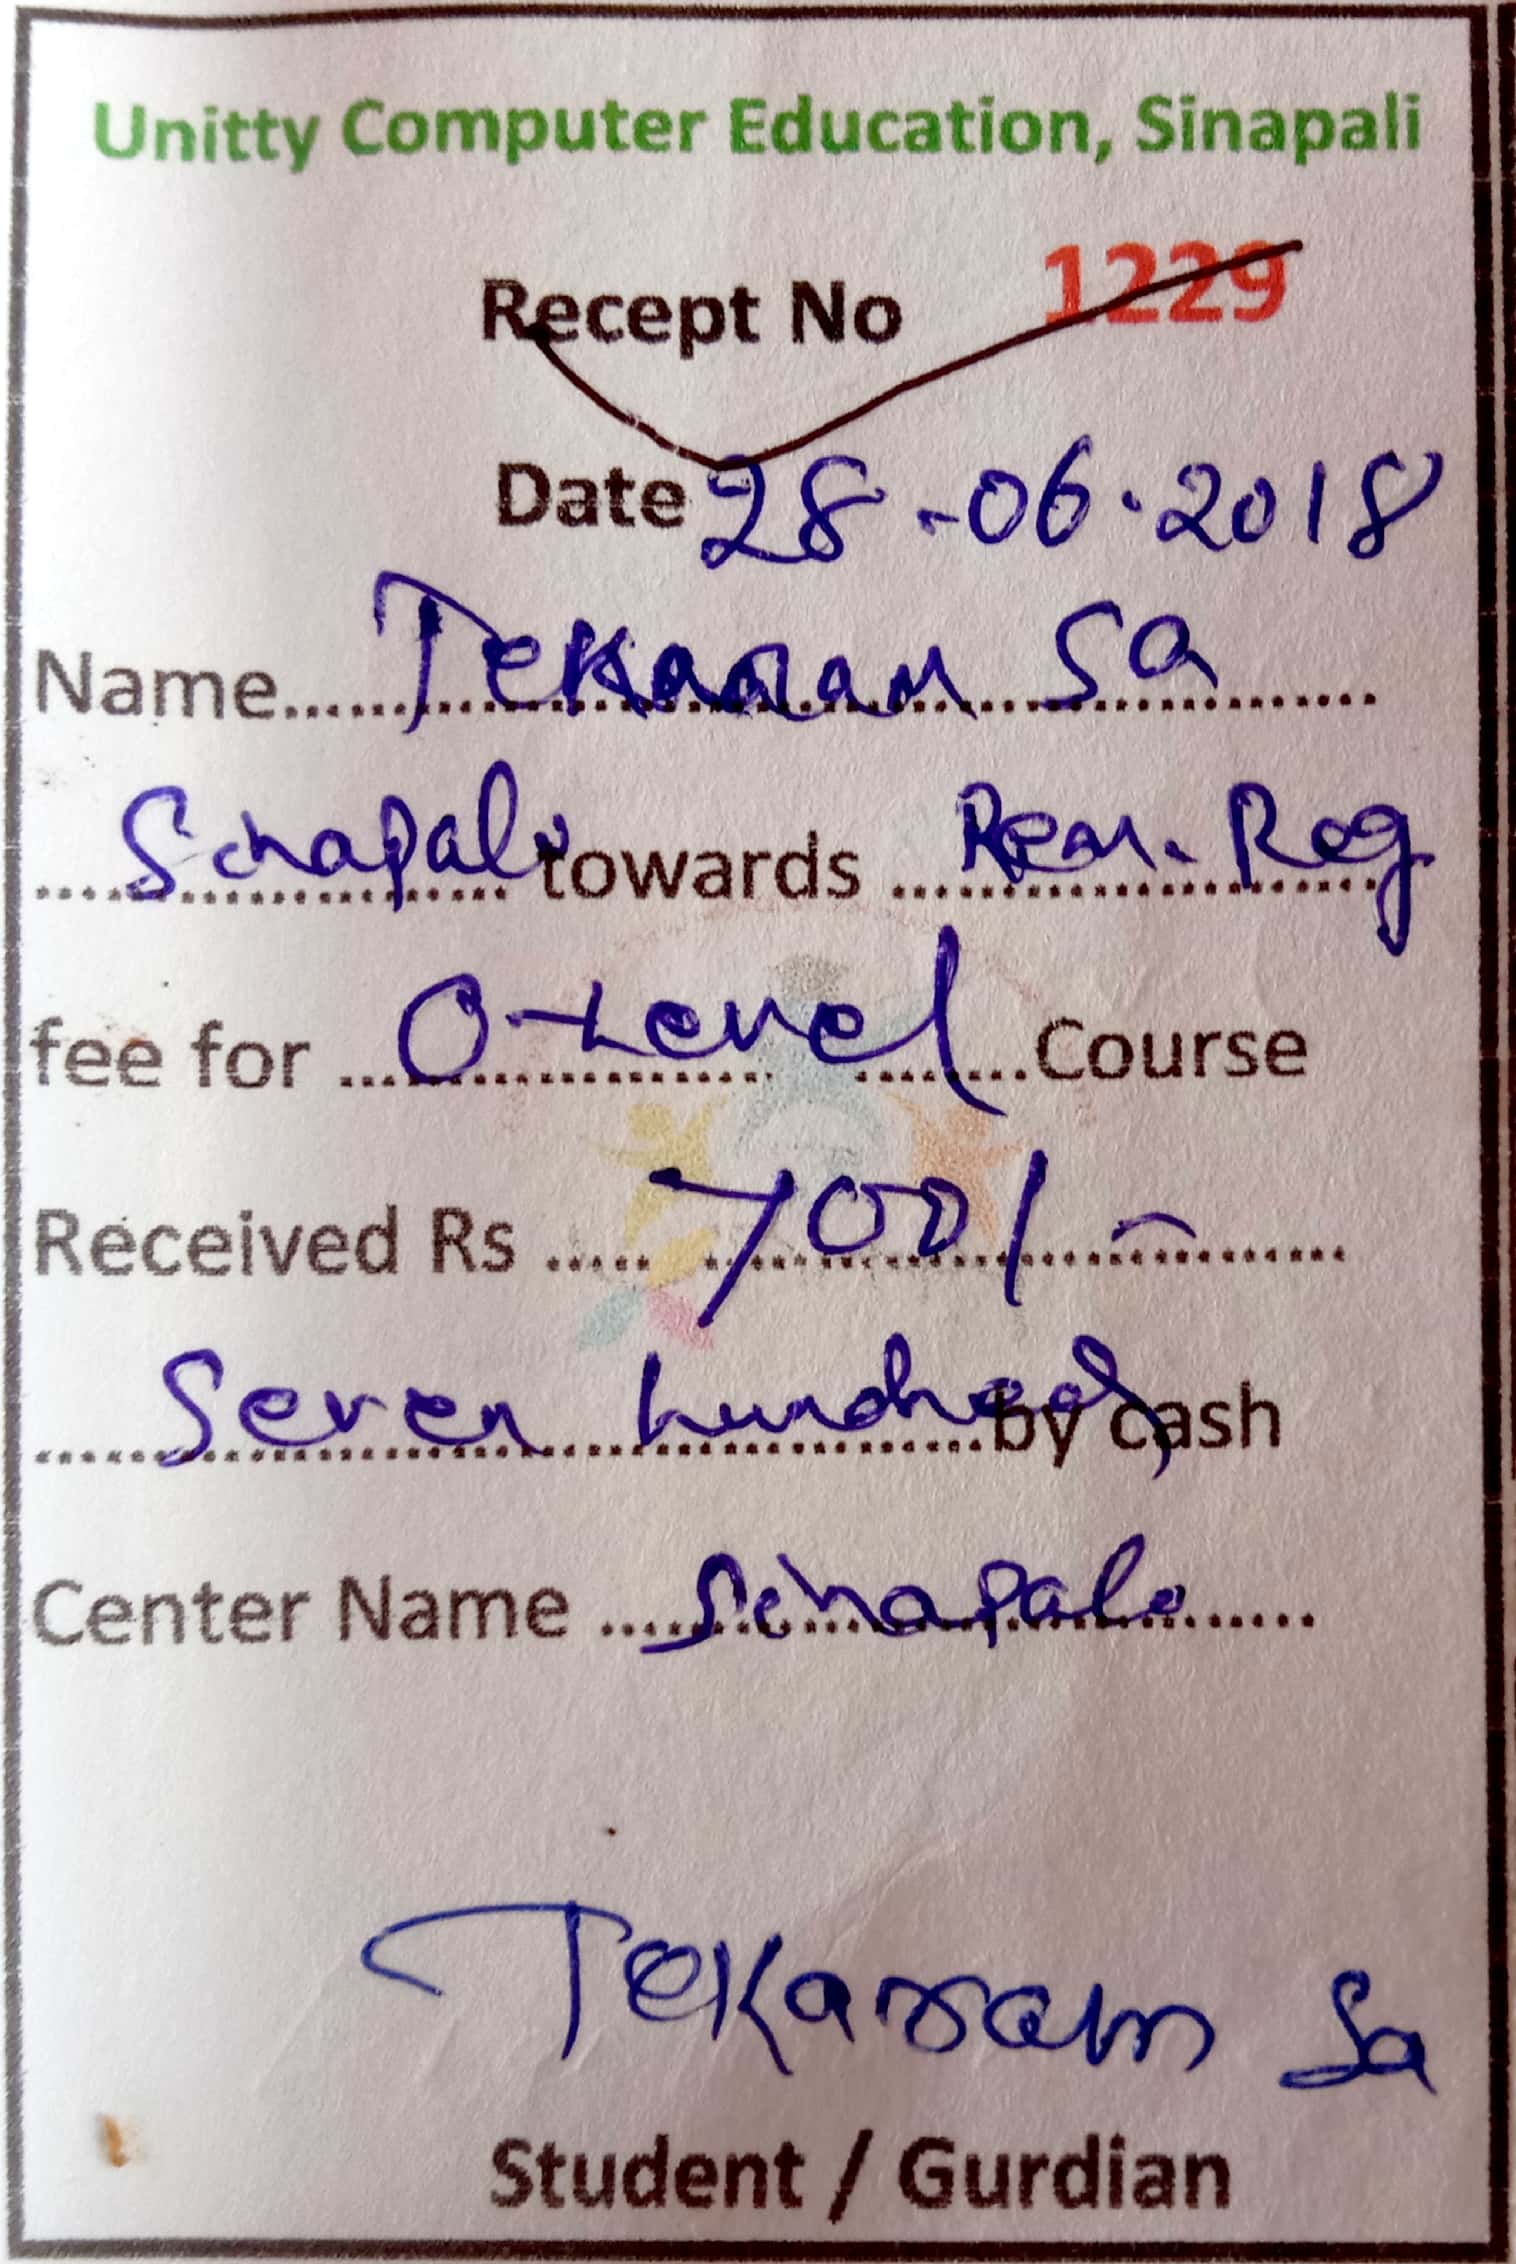 Unitty Computer Education, Sinapali
Recept No 1229
Date 28-06-2018
Name....Tekaram Sa....
....Sinapali towards ....Rem. Reg
fee for ....O-Level....Course
Received Rs ....700/-....
....Seven hundred by cash
Center Name ....Sinapali....
Tekaram Sa
Student / Gurdian